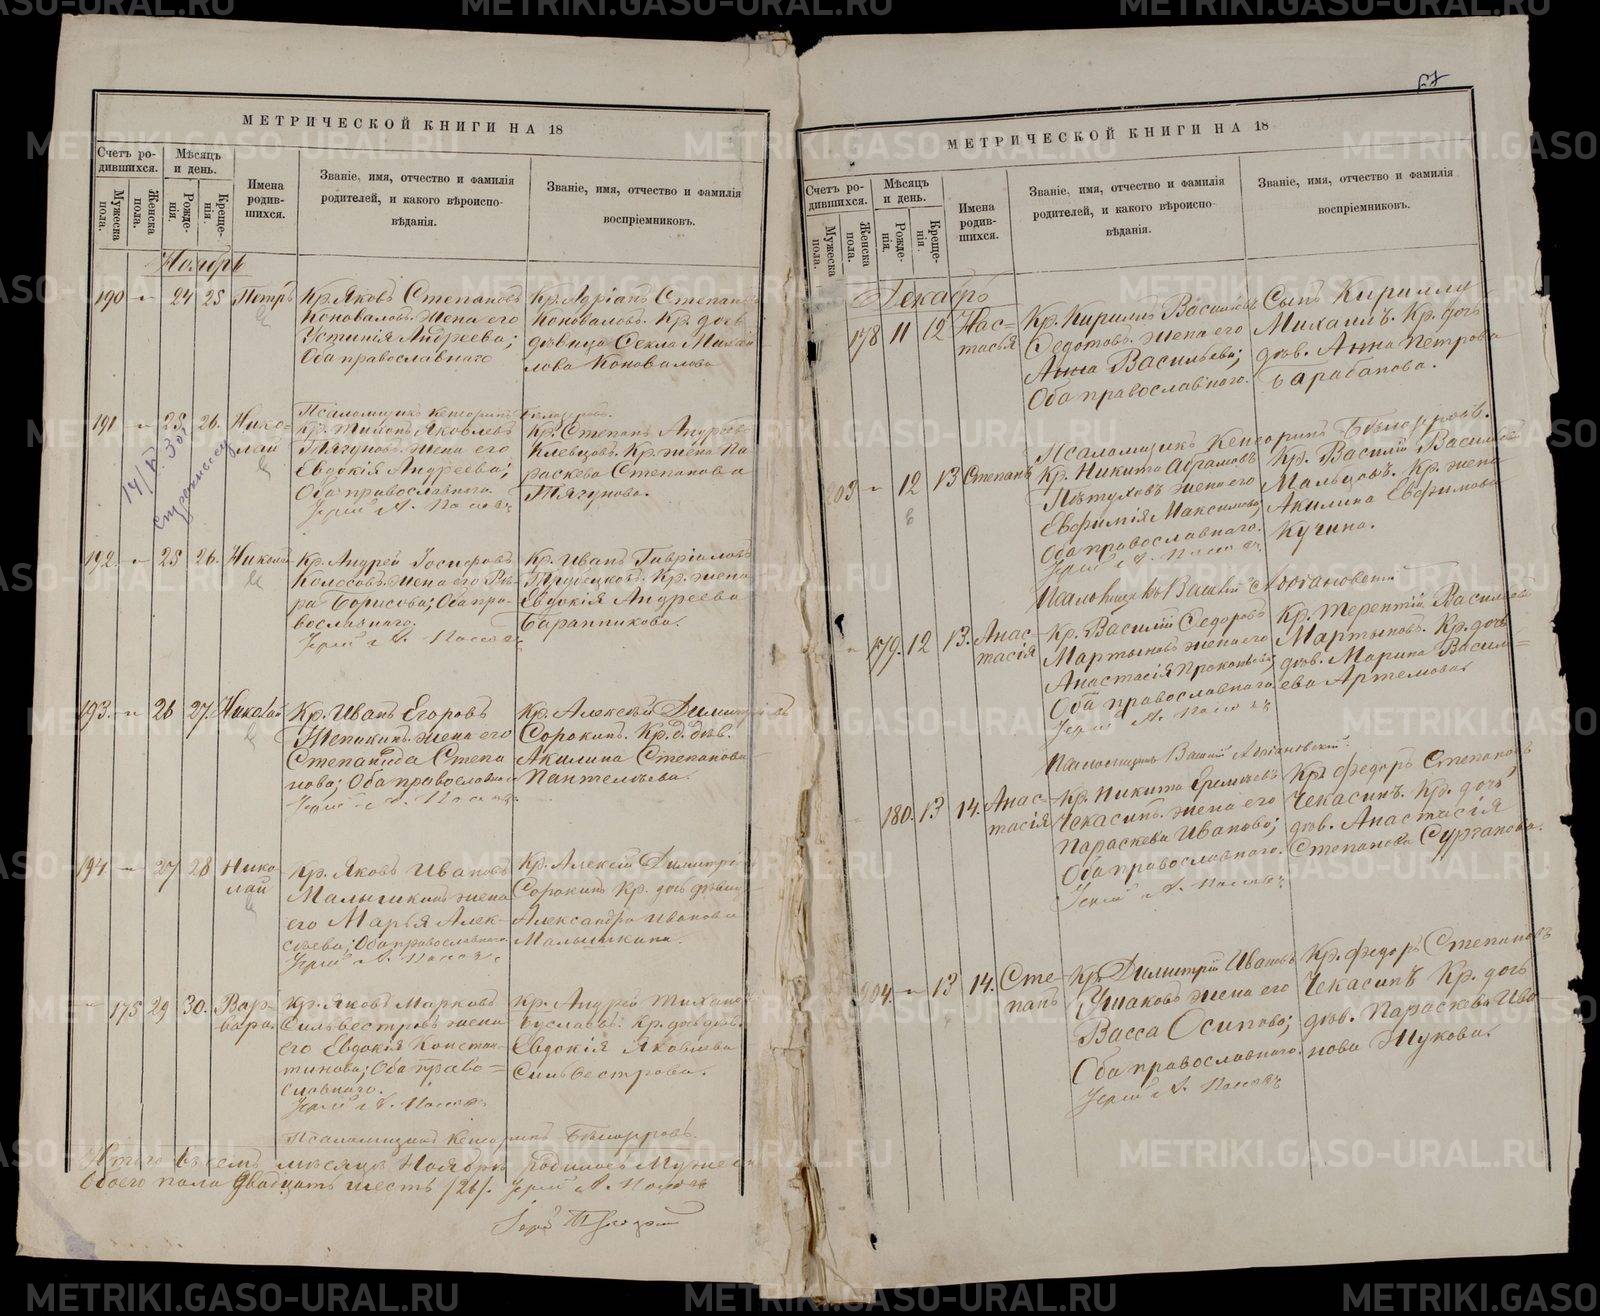 МЕТРИЧЕСКОЙ КНИГИ НА 18
Счетъ родившихся.
Мужеска пола.
Женска пола.
Мѣсяцъ и день.
Рожденія.
Крещенія.
Имена родившихся.
Званіе, имя, отчество и фамилія родителей, и какого вѣроисповѣданія.
Званіе, имя, отчество и фамилія воспріемниковъ.
Ноябрь
190 " 24 25 Петръ
Кр. Яковъ Степановъ
Коноваловъ. жена его
Устинія Андреева;
Оба православнаго
Кр. Адріанъ Степановъ
Коноваловъ. Кр. дочь
дѣвица Секла Михаи
лова Коновалова
Псаломщикъ Кенсоринъ Бѣлозеровъ.
191 " 25 26. Нико-
лай
Кр. Тимонъ Яковлевъ
Тягуновъ. жена его
Евдокія Андреева;
Оба православнаго
Кр. Степанъ Андреевъ
Клевцовъ. Кр. жена Па
раскева Степанова
Тягунова.
192. " 25 26. Николай
Кр. Андрей Іосифовъ
Колосовъ. жена его Вѣ
ра Борисова; Оба пра-
вославнаго.
Кр. Иванъ Гавріиловъ
Кр. жена
Евдокія Андреева
Баранникова.
193. " 26 27. Николай
Кр. Иванъ Егоровъ
Жепакинъ. жена его
Степанида Степа
нова; Оба православнаго
Кр. Алексѣй Димитріевъ
Сорокинъ. Кр. д. дѣв.
Акилина Степанова
Пантелѣева.
194 " 27 28 Нико
лай
Кр. Яковъ Ивановъ
Малышкинъ жена
его Марья Алек-
сѣева; Оба православнаго
Кр. Алексѣй Димитріевъ
Сорокинъ Кр. дочь дѣвица
Александра Иванова
Малышкина.
" 175 29 30. Вар-
вара.
Кр. Яковъ Марковъ
Сильвестровъ жена
его Евдокія Констан-
тинова; Оба право-
славнаго.
Кр. Андрей Тихано
Буслаевъ: Кр. дочь дѣв.
Евдокія Яковлева
Сильвестрова.
Псаломщикъ Кенсоринъ Бѣлозеровъ.
Итого въ семъ мѣсяцѣ Ноябрѣ родилось Мужеска
обоего пола двадцать шесть /26/.
МЕТРИЧЕСКОЙ КНИГИ НА 18
Счетъ родившихся.
Мужеска пола.
Женска пола.
Мѣсяцъ и день.
Рожденія.
Крещенія.
Имена родившихся.
Званіе, имя, отчество и фамилія родителей, и какого вѣроисповѣданія.
Званіе, имя, отчество и фамилія воспріемниковъ.
Декабрь
178 11 12 Нас-
тасья
Кр. Кирилъ Васильевъ
Федотовъ. жена его
Анна Васильева;
Оба православнаго.
Сынъ Кириллу
Михаилъ. Кр. дочь
дѣв. Анна Петрова
Барабанова.
Псаломщикъ Кенсоринъ Бѣлозеровъ.
203 " 12 13 Степанъ
Кр. Никита Абрамовъ
Пѣтуховъ жена его
Евфимія Максимова;
Оба православнаго.
Кр. Василій Васильевъ
Мальцовъ. Кр. жена
Акилина Евфимова
Кучина.
" 179. 12 13. Анас-
тасія
Кр. Василій Седоровъ
Мартыновъ жена его
Анастасія Прокопьева
Оба православнаго
Кр. Терентій Васильевъ
Мартыновъ. Кр. дочь
дѣв. Марина Василь-
ева Артемова.
180. 13 14. Анас-
тасія
Кр. Никита Еремѣевъ
Чекасинъ. жена его
Параскева Иванова;
Оба православнаго.
Кр. Федоръ Степановъ
Чекасинъ. Кр. дочь
дѣв. Анастасія
Степанова Сурганова.
204. " 13 14. Сте-
панъ
Кр. Димитрій Ивановъ
Ушаковъ жена его
Васса Осипова;
Оба православнаго.
Кр. Федоръ Степановъ
Чекасинъ Кр. дочь
дѣв. Параскева Ива
нова Жукова.
METRIKI.GASO-URAL.RU